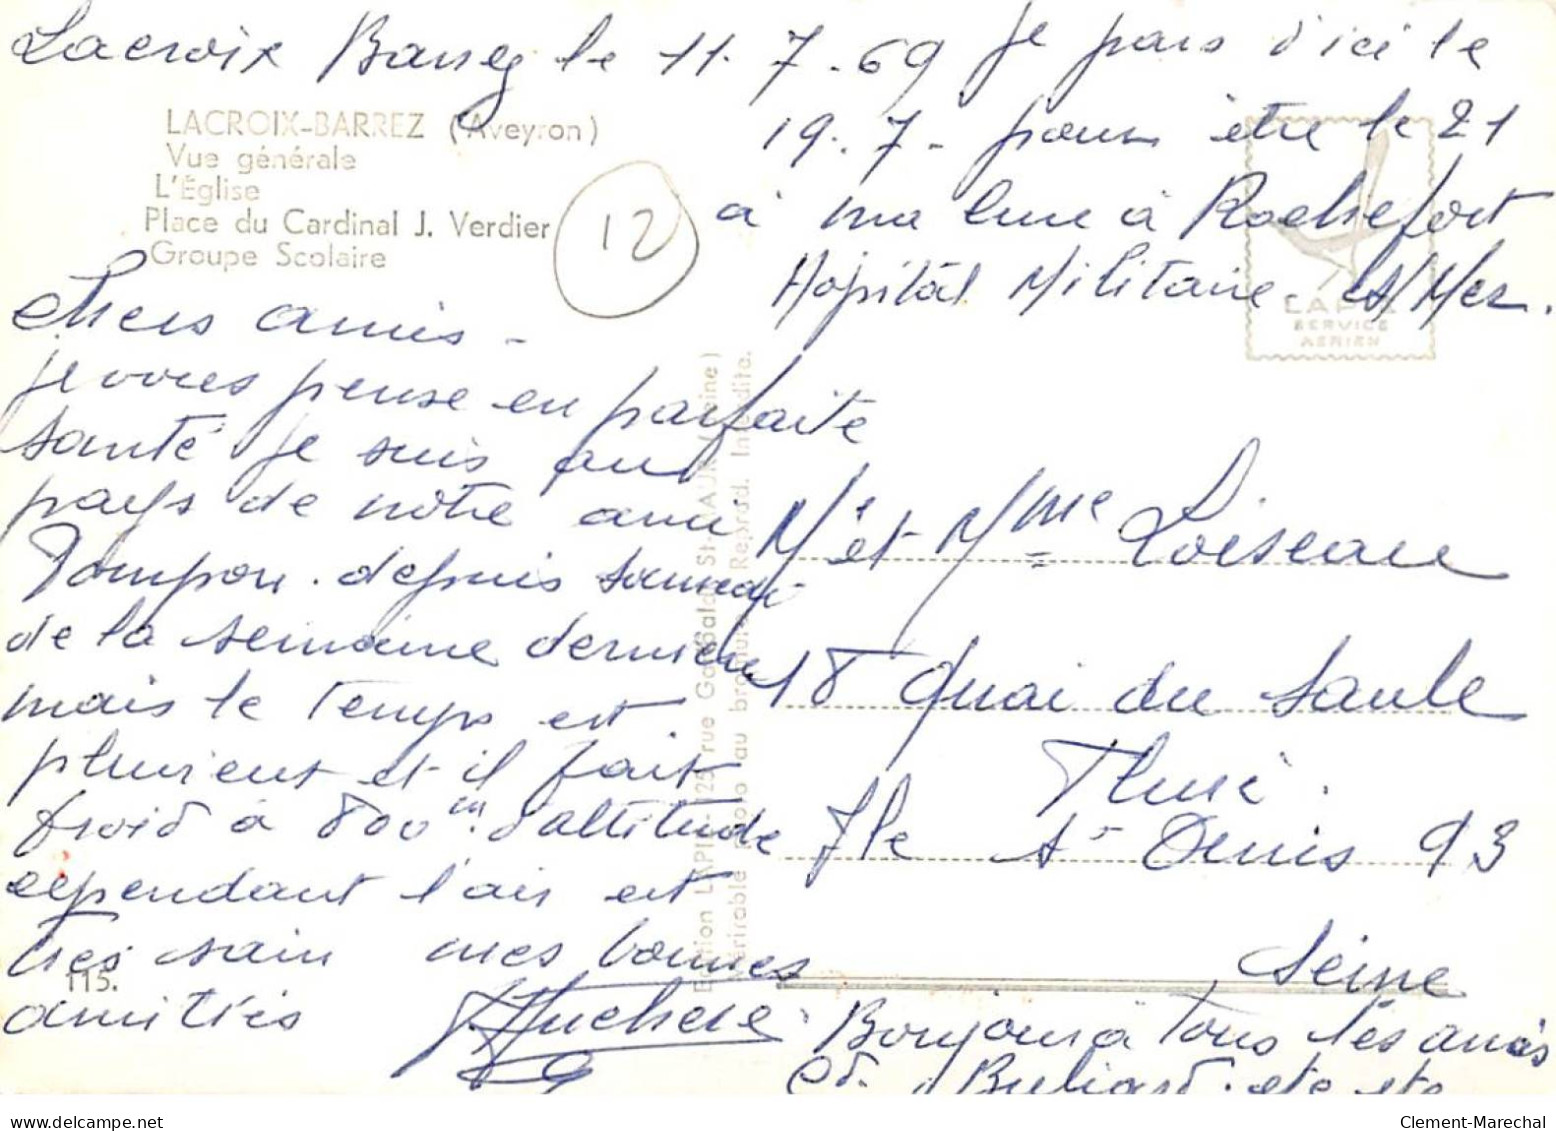 Lacroix Barrez le 11.7.69
LACROIX-BARREZ (Aveyron)
Vue générale
L'Église
Place du Cardinal J. Verdier
Groupe Scolaire
12
je pars d'ici le
19.7- pour être le 21
à ma cure à Rochefort
Hopital Militaire s/Mer.
LAPIE
SERVICE
AERIEN
chers amis -
je vous pense en parfaite
santé je suis au
pays de notre ami
Pompon. depuis samedi
de la semaine derniere
mais le temps est
pluvieux et il fait
froid à 800 m d'altitude
cependant l'air est
tres sain mes bonnes
amitiés
115.
Edition LAPIE, 125, rue Garibaldi St-MAUR (Seine)
Véritable photo au bromure Reprod. Interdite.
Mr et Mme Loiseau
18 Quai du Saule
Fleuri.
Ile St Denis 93
Seine
Bonjour à Tous les amis
et Buliard. etc etc
delcampe.net
Clement-Marechal